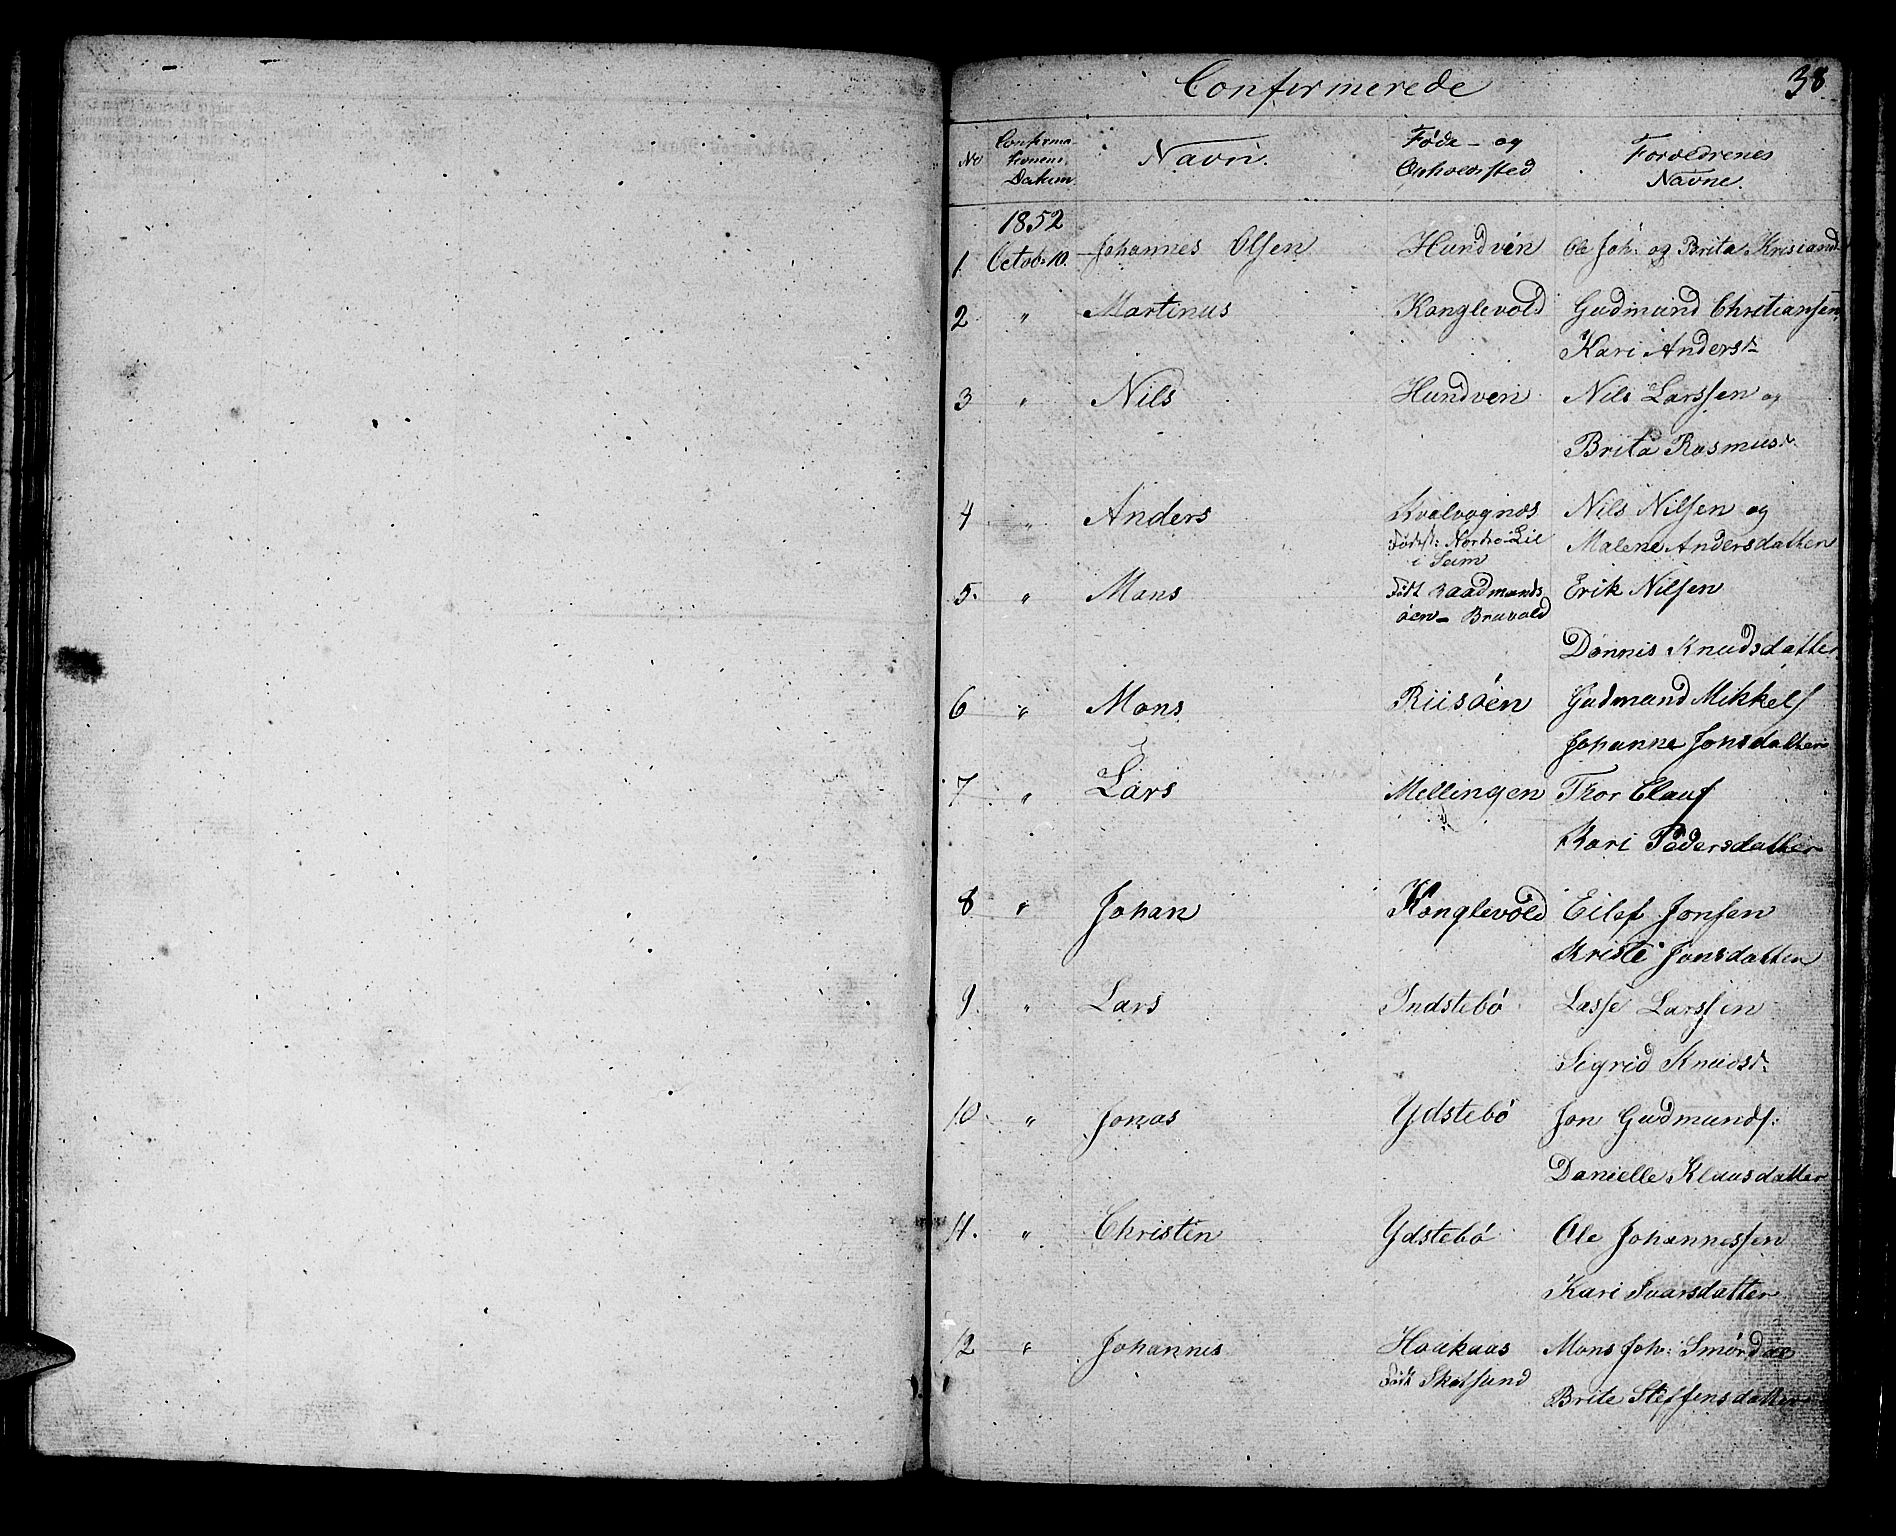 Confermerede 38
No Confirma- tionens Datum Navn. Føde- og Opholdssted Forældrenes Navne.
1852
1. Octob. 10. Johannes Olsen Hundvin Ole Joh: og Brita Krisiansd
2 " Martinus Konglevold Gudmund Christiansen
Kari Andersd.
3 " Nils Hundvin Nils Larssen og
Brita Rasmusd.
4 " Anders Kvalvognæs Nils Nilsen og
Fødest: Nordre-Lie Malene Andersdatter
i Seim
5. " Mons Født Raadmands Erik Nilsen
øen - Bruvold
Dønnis Knudsdatter
6 " Mons Riisøen Gudmund Mikkels
Johanne Jonsdatter
7 " Lars Mellingen Thor Claus
Kari Pedersdatter
8 " Johan Konglevold Eilef Jonsen
Kristi Jonsdatter
9. " Lars Indstebø Lasse Larssen
Sigrid Knudsd.
10. " Jonas Ydstebø Jon Gudmunds:
Danielle Klausdatter
11. " Christen Ydstebø Ole Johannessen
Kari Ivarsdatter
12 " Johannis Haakaas Mons Joh: Smørdal
Født Skotsund
Brite Steffensdatter